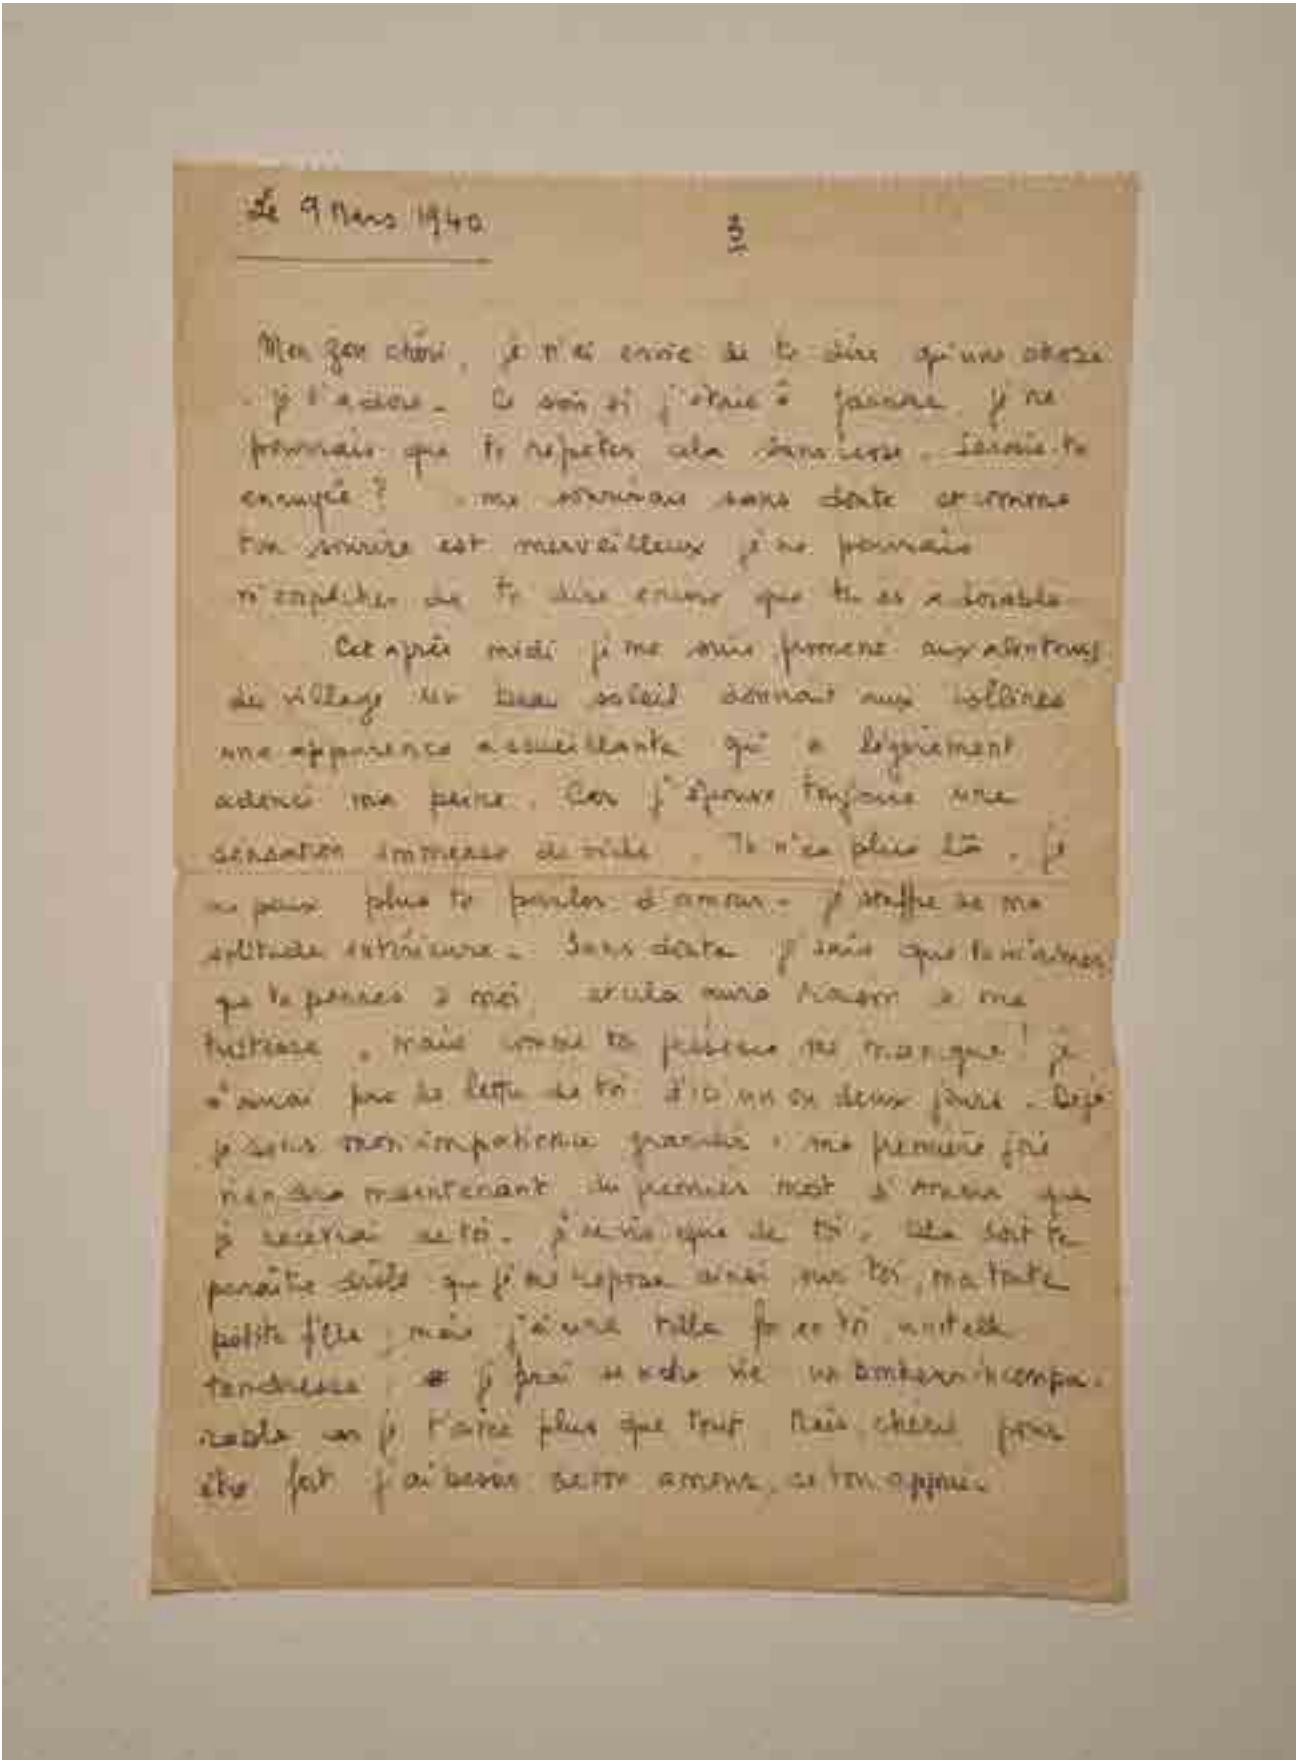 Le 9 Mars 1940
3
Mon zon chéri, je n'ai envie de te dire qu'une chose
je t'adore. Ce soir si j'étais à je ne
pourrais que te répéter cela sans cesse. Serais-tu
ennuyée ? me sourirais sans doute et comme
ton sourire est merveilleux je ne pourrais
m'empêcher de te dire encore que tu es adorable
Cet après midi je me suis promené aux alentours
du village un beau soleil donnait aux collines
une apparence accueillante qui a légèrement
adouci ma peine. Car j'éprouve toujours une
sensation immense de vide. Tu n'es plus là, je
ne peux plus te parler d'amour. je souffre de ma
solitude extérieure. Sans doute je sais que tu m'aimes
que tu penses à moi, et cela aura raison de ma
tristesse, mais comme ta présence me manque ! je
n'aurai pas de lettre de toi d'ici un ou deux jours. Déjà
je sens mon impatience grandir : ma première joie
viendra maintenant du premier mot d'amour que
je recevrai de toi. je ne vis que de toi. Cela doit te
paraître drôle que je me repose ainsi sur toi, ma toute
petite fille, mais j'ai une telle foi en toi, une telle
tendresse, je ferai de notre vie un bonheur incompa-
rable car je t'aime plus que tout. Mais, chérie pour
être fort j'ai besoin de ton amour, de ton appui.